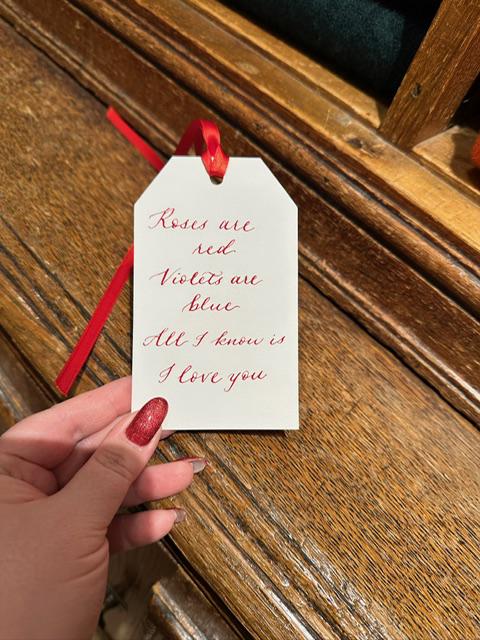 Roses are
red
Violets are
blue
All I know is
I love you